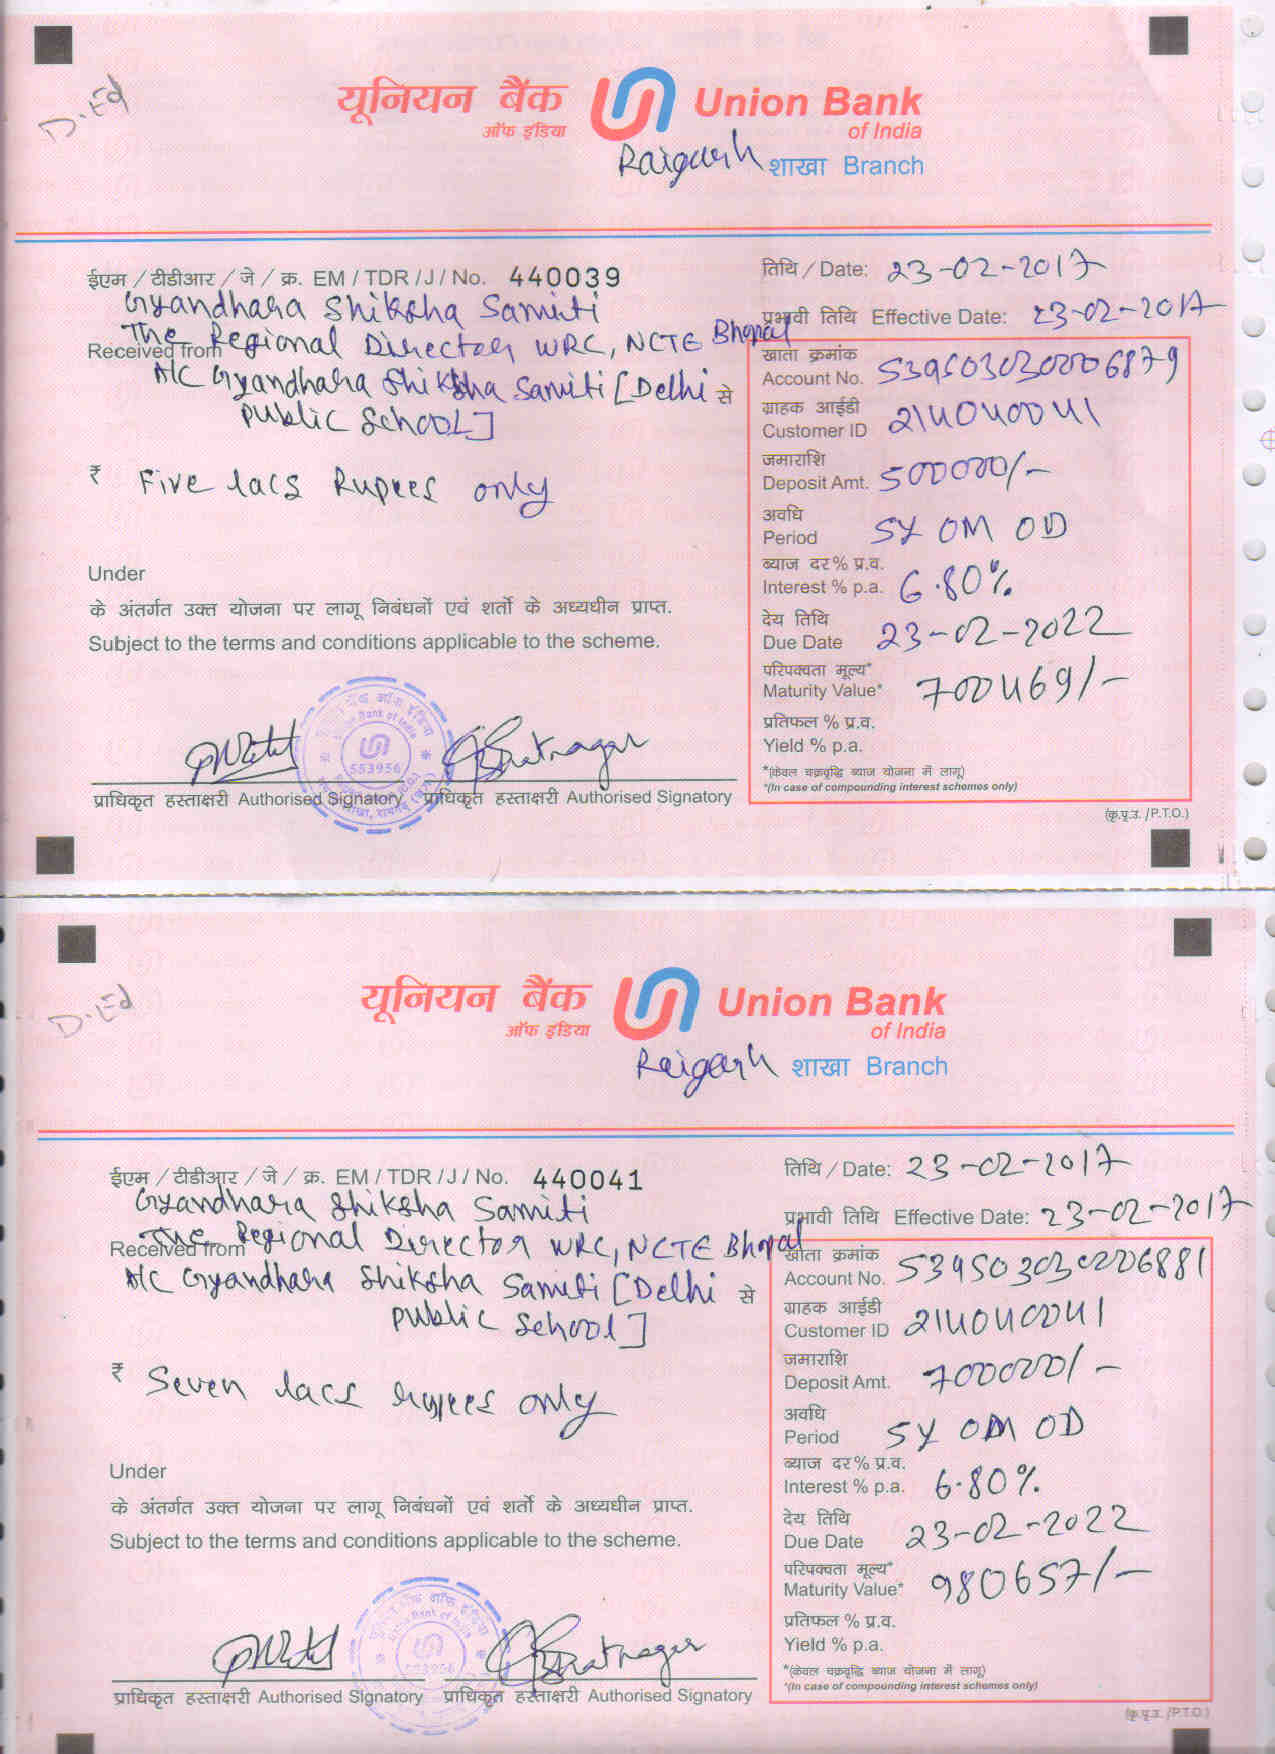 D.Ed
यूनियन बैंक
ऑफ इंडिया
Union Bank
of India
Raigarh शाखा Branch
ईएम / टीडीआर / जे / क्र. EM / TDR / J / No. 440039
तिथि / Date: 23-02-2017
Gyandhara Shiksha Samiti
प्रभावी तिथि Effective Date: 23-02-2017
Received from The Regional Director WRC, NCTE Bhopal
A/C Gyandhara Shiksha Samiti [Delhi से
Public School]
₹ Five lacs Rupees only
खाता क्रमांक
Account No. 539503030006879
ग्राहक आईडी
Customer ID 214040041
जमाराशि
Deposit Amt. 500000/-
अवधि
Period 5Y 0M 0D
ब्याज दर % प्र.व.
Interest % p.a. 6.80%
देय तिथि
Due Date 23-02-2022
परिपक्वता मूल्य*
Maturity Value* 700469/-
प्रतिफल % प्र.व.
Yield % p.a.
*(केवल चक्रवृद्धि ब्याज योजना में लागू)
*(In case of compounding interest schemes only)
Under
के अंतर्गत उक्त योजना पर लागू निबंधनों एवं शर्तो के अध्यधीन प्राप्त.
Subject to the terms and conditions applicable to the scheme.
553956
प्राधिकृत हस्ताक्षरी Authorised Signatory प्राधिकृत हस्ताक्षरी Authorised Signatory
(कृ.पृ.उ. /P.T.O.)
D.Ed
यूनियन बैंक
ऑफ इंडिया
Union Bank
of India
Raigarh शाखा Branch
ईएम / टीडीआर / जे / क्र. EM / TDR / J / No. 440041
तिथि / Date: 23-02-2017
Gyandhara Shiksha Samiti
प्रभावी तिथि Effective Date: 23-02-2017
Received from The Regional Director WRC, NCTE Bhopal
A/C Gyandhara Shiksha Samiti [Delhi से
Public School]
₹ Seven lacs rupees only
खाता क्रमांक
Account No. 539503030006881
ग्राहक आईडी
Customer ID 214040041
जमाराशि
Deposit Amt. 700000/-
अवधि
Period 5Y 0M 0D
ब्याज दर % प्र.व.
Interest % p.a. 6.80%
देय तिथि
Due Date 23-02-2022
परिपक्वता मूल्य*
Maturity Value* 980657/-
प्रतिफल % प्र.व.
Yield % p.a.
*(केवल चक्रवृद्धि ब्याज योजना में लागू)
*(In case of compounding interest schemes only)
Under
के अंतर्गत उक्त योजना पर लागू निबंधनों एवं शर्तो के अध्यधीन प्राप्त.
Subject to the terms and conditions applicable to the scheme.
553956
प्राधिकृत हस्ताक्षरी Authorised Signatory प्राधिकृत हस्ताक्षरी Authorised Signatory
(कृ.पृ.उ. /P.T.O.)